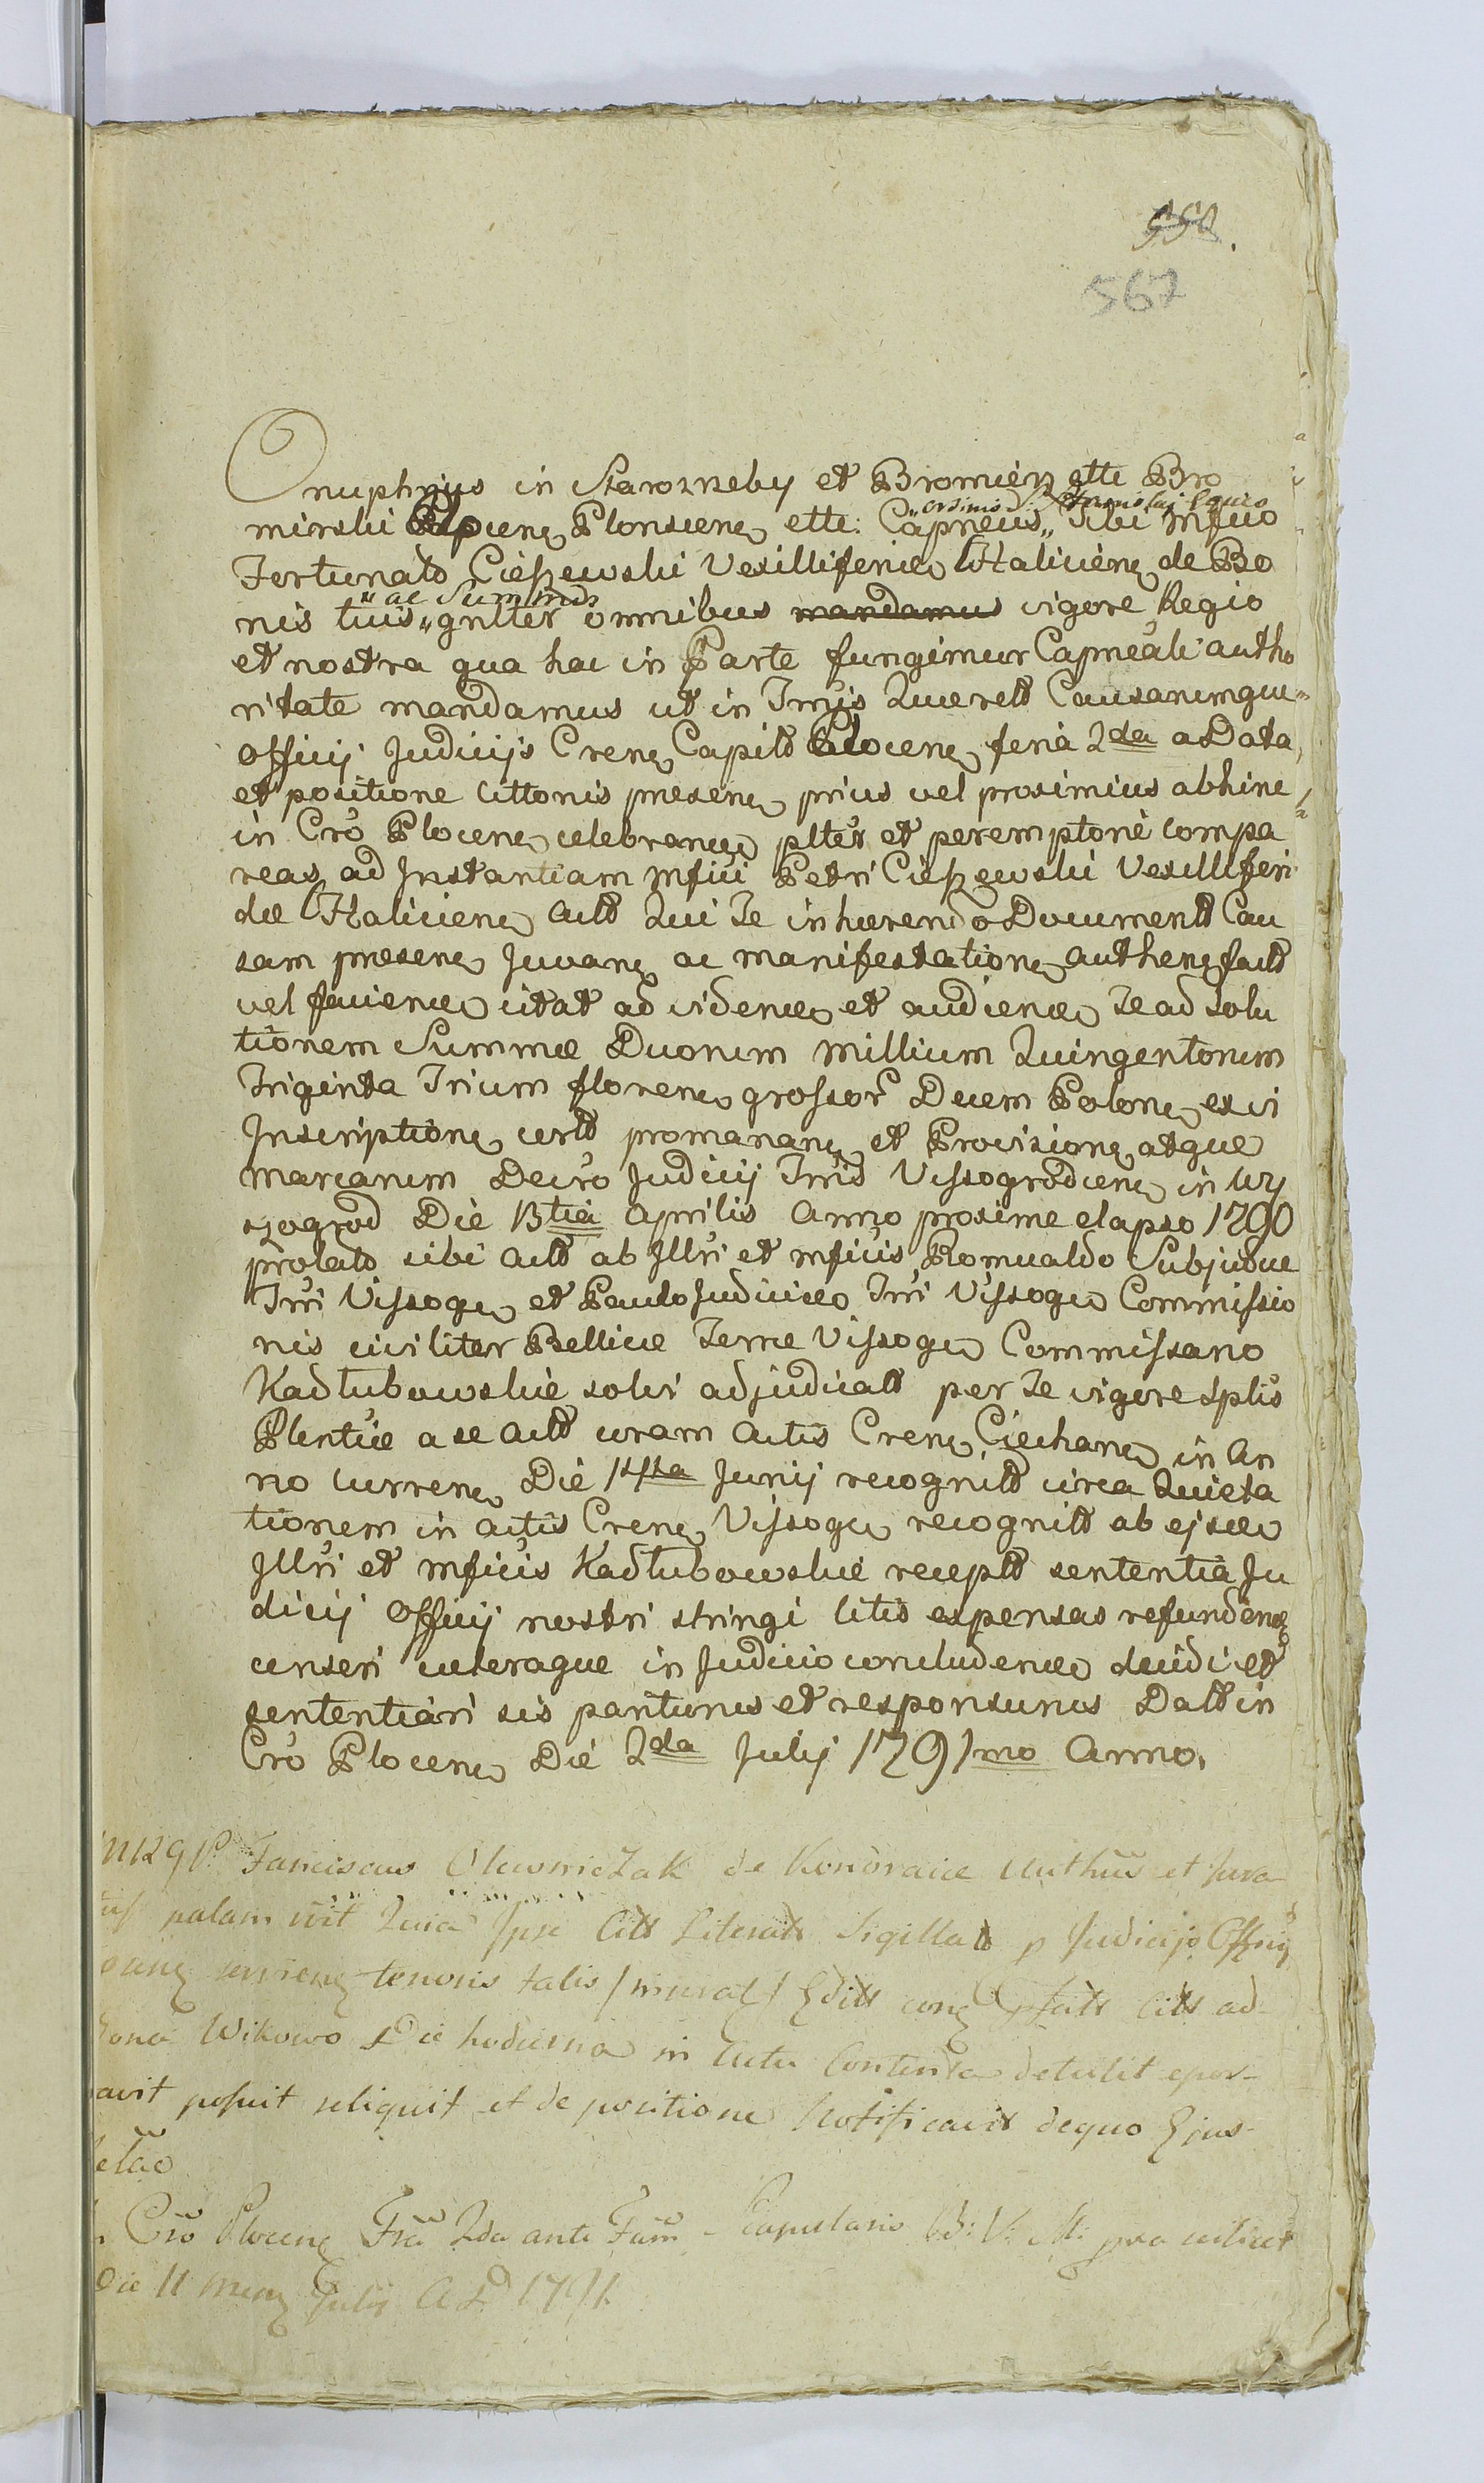 567
Onuphrius in Starozreby et Bromierz ette Bro
mirski Plocenę Plonscenę ette: Capneus „ordinis S: Stanislai Eques„ Tibi Mfico
Fortunato Cieszewski Vexilliferidæ Halicienę de Bo
nis tuis „ac Summis„ gnlter omnibus mandamus vigore Regio
et nostra qua hac in Parte fungimur Capneali autho
ritate mandamus ut in Trrijs Querelt Causarumque
Officij Judicijs Crenę Capitt Plocenę feria 2da a Data
et positione Cittonis presenę prius vel proximius abhinc
in Cró Plocenę celebranę plter et peremptorie compa
reas ad Instantiam Mfici Petri Cieszewski Vexilliferi
dæ Halicienę Actt Qui Te inhærendo Document Cau
sam presenę Juvanę ac manifestationę authenę fact
vel faciendę citat ad videndę et audiendę Te ad solu
tionem Summæ Duorum Millium Quingentorum
Triginta Trium florenę grossor Decem Polonę ex vi
Inscriptionę certt promananę et Provisionę atque
marcarum Decró Judicij Trris Vissogrodienę in Wy
szogrod Die 13tia Aprilis Anno proxime elapso 1790
prolato sibi Actt ab Illri et Mficis Romualdo Subjudice
Trri Vissogę et Paulo Judicidę Trri Vissogę Commissio
nis civiliter Bellicæ Terræ Vissogę Commissario
Kadłubowskie solvi adjudicatt per Te vigore splis
Plentiæ a se Actt coram Actis Crenę Ciechanę in An
no currenę Die 14ta Junij recognitt circa Quieta
tionem in Actis Crenę Vissogę recognitt ab ejsdę
Illri et Mficis Kadłubowskie receptt sententia Ju
dicij Officij nostri stringi litis expensas refundendę
censeri cæteraque in Judicio concludendę decidi et
sententiari sis pariturus et responsurus Datt in
Cró Plocenę Die 2da Julij 1791mo Anno.
Franciscus OlewniczaK de Kondraiec Authus et Jura
palam rit Quia Ipse Citt Literatt Sigillatt p Judicijo Officij
servienę tenoris talis /inserat/ Editt conę Citt ad
bona Wikowo Die hodierna in Cutu Contenta detulit epor
tavit posuit reliquit et de positione Notificavit dequo Ejus
relāo
Cro Plocenę Fria 2da ante Fum Scapularis B: V: M: pra scilicet
Die 11 Mensę Julij A D 1791.